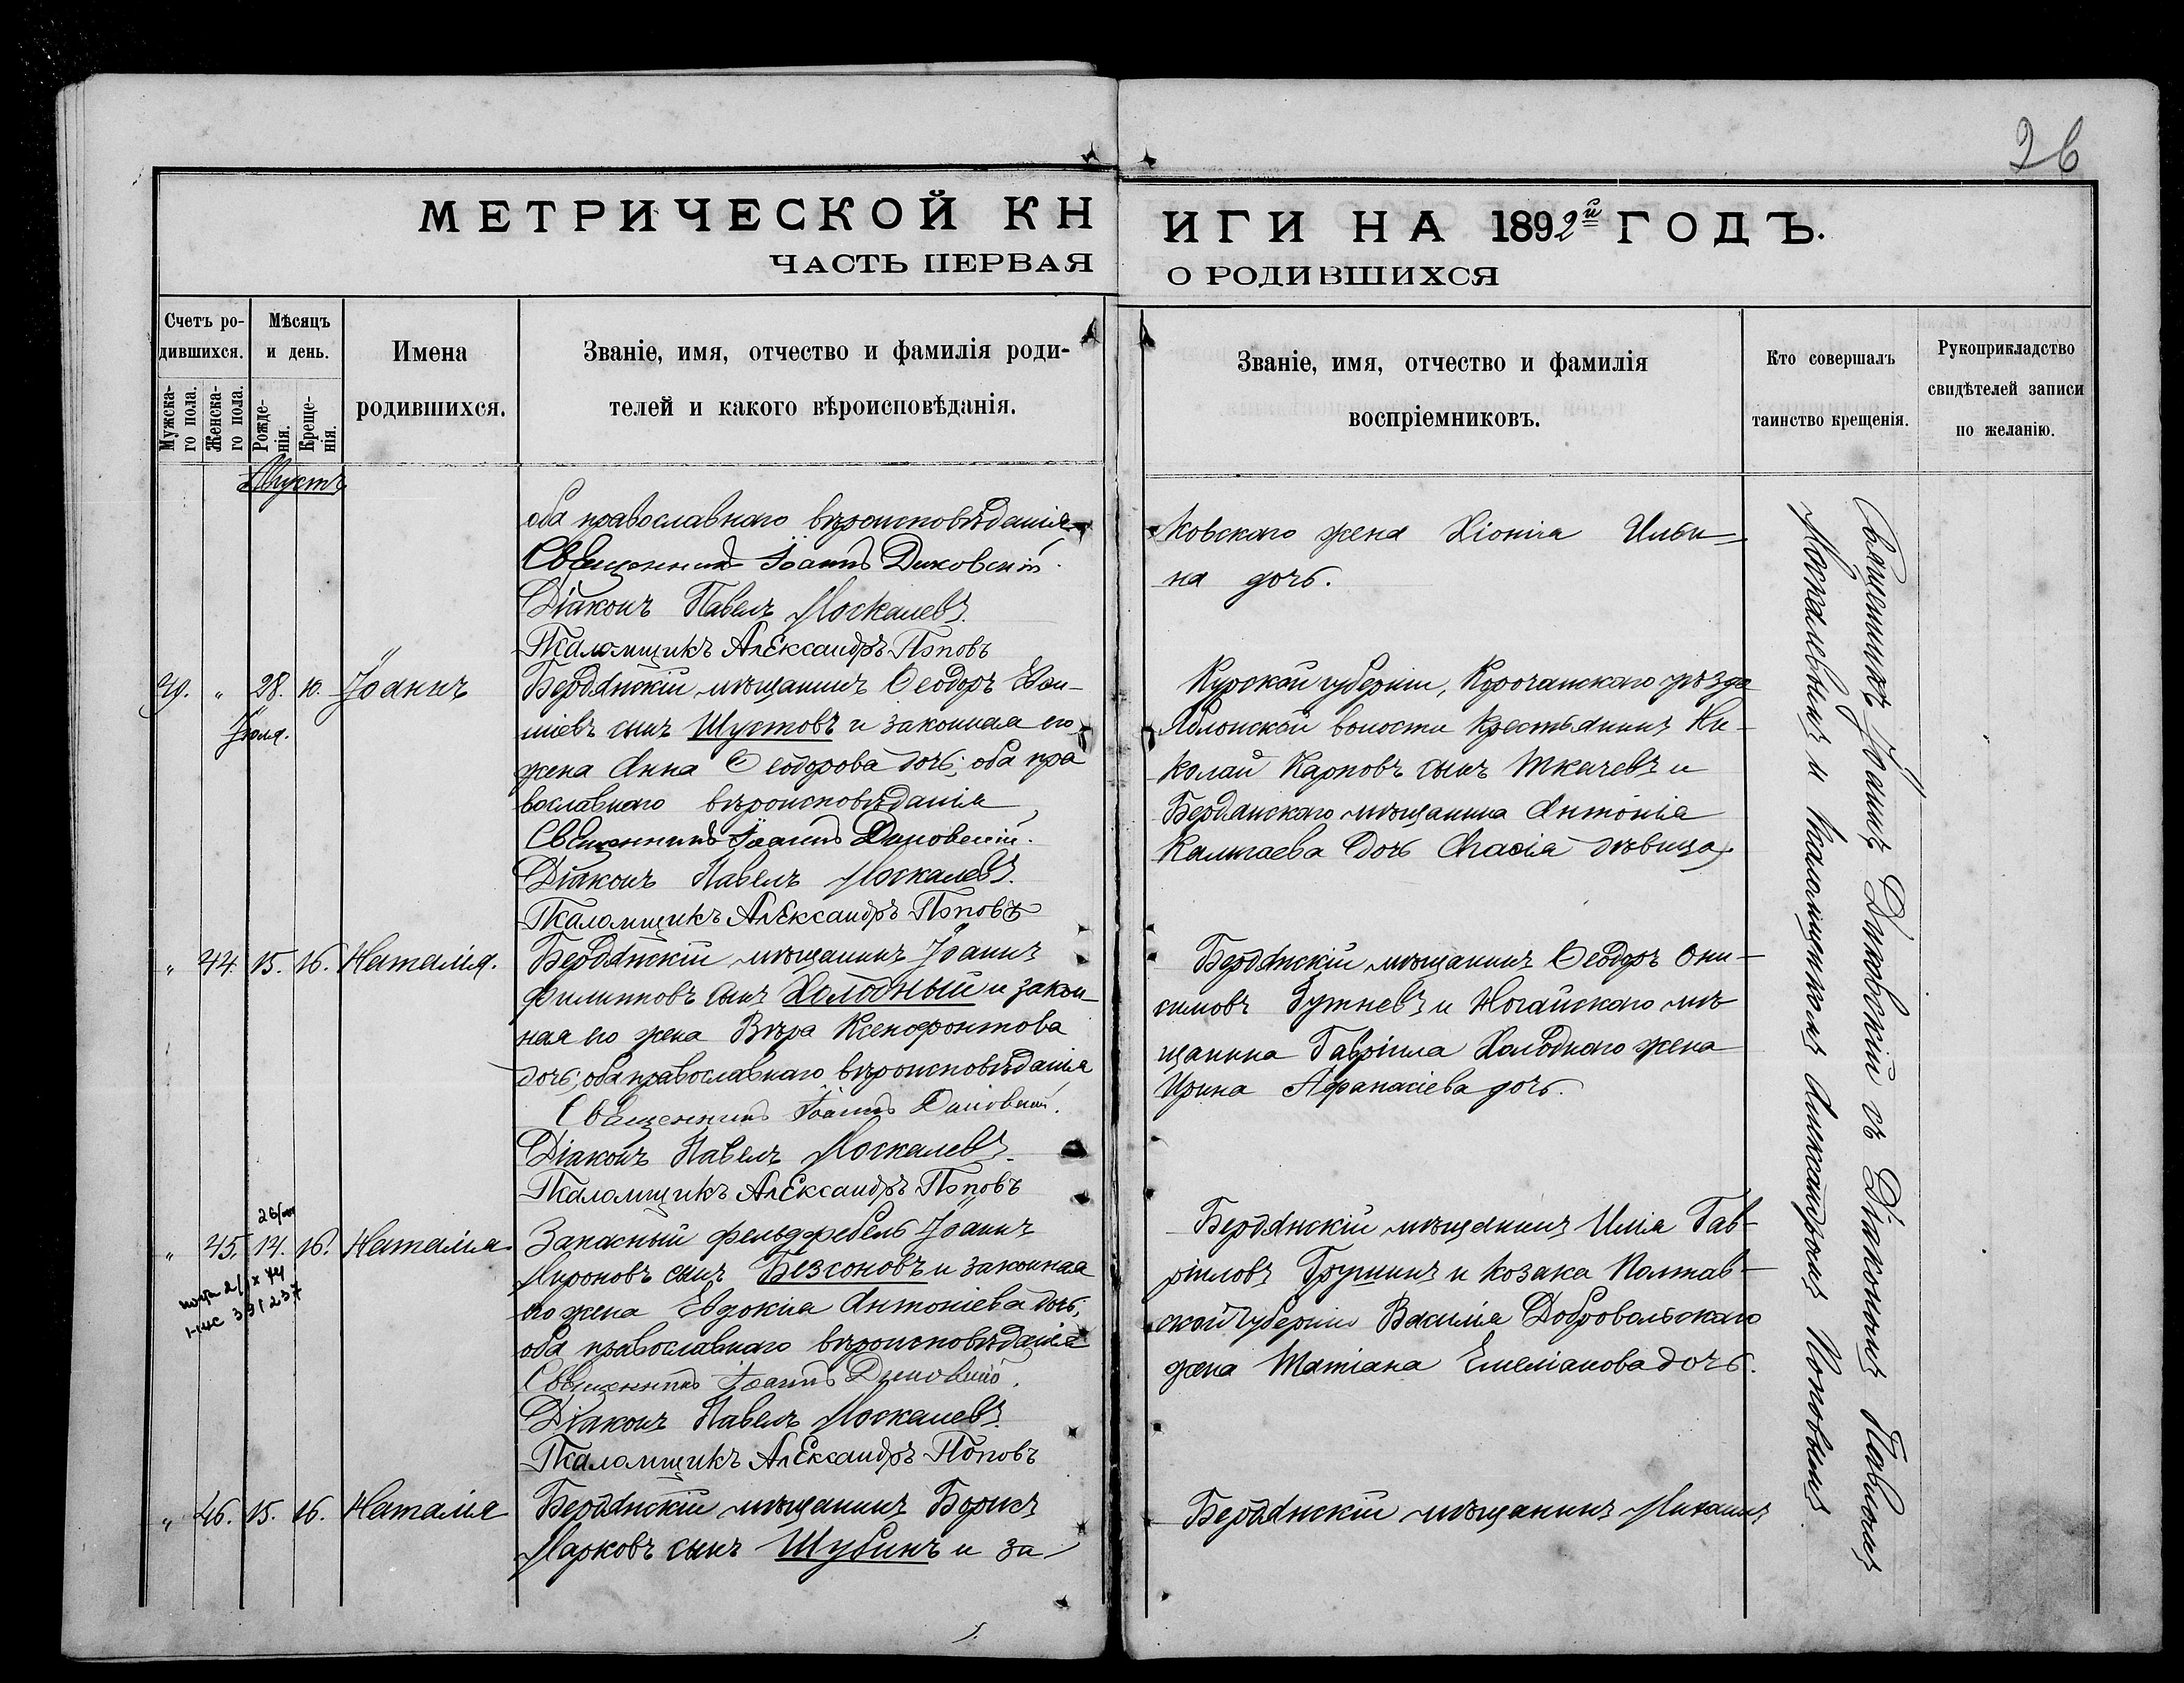 26
МЕТРИЧЕСКОЙ КНИГИ НА 1892й ГОДЪ.
ЧАСТЬ ПЕРВАЯ О РОДИВШИХСЯ
Счетъ ро-
дившихся.
Мужска-
го пола.
Женска-
го пола.
Мѣсяцъ
и день.
Рожде-
нія.
Креще-
нія.
Имена
родившихся.
Званіе, имя, отчество и фамилія роди-
телей и какого вѣроисповѣданія.
Званіе, имя, отчество и фамилія
воспріемниковъ.
Кто совершалъ
таинство крещенія.
Рукоприкладство
свидѣтелей записи
по желанію.
Августъ
оба православнаго вѣроисповѣданія
Священникъ Іоаннъ Диковскій.
Діаконъ Павелъ Москалевъ.
Псаломщикъ Александръ Поповъ
ковскаго жена Хіонія Ильи-
на дочь.
39. " 28. 10. Іоаннъ
Іюля.
Бердянскій мѣщанинъ Ѳеодоръ
сынъ Шустовъ и законная его
жена Анна Ѳеодорова дочь; оба пра
вославнаго вѣроисповѣданія
Священникъ Іоаннъ Диковскій.
Діаконъ Павелъ Москалевъ.
Псаломщикъ Александръ Поповъ
Курской губерніи, Корочанскаго уѣзда
Яблонской волости крестьянинъ Ни-
колай Карповъ сынъ Ткачевъ и
Бердянскаго мѣщанина Антонія
дочь дѣвица.
" 44. 15. 16. Наталія.
Бердянскій мѣщанинъ Іоаннъ
Филипповъ сынъ Холодный и закон-
ная его жена Вѣра Ксенофонтова
дочь; оба православнаго вѣроисповѣданія
Священникъ Іоаннъ Диковскій.
Діаконъ Павелъ Москалевъ.
Псаломщикъ Александръ Поповъ
Бердянскій мѣщанинъ Ѳеодоръ Они-
симовъ и Ногайскаго мѣ
щанина Гавріила Холоднаго жена
Ирина Афанасіева дочь.
" 45. 14. 16. Наталія
Запасный фельдфебель Іоаннъ
Мироновъ сынъ Безсоновъ и законная
его жена Евдокія Антоніева дочь;
оба православнаго вѣроисповѣданія
Священникъ Іоаннъ Диковскій.
Діаконъ Павелъ Москалевъ
Псаломщикъ Александръ Поповъ
Бердянскій мѣщанинъ Илія Гав-
ріиловъ Грушинъ и козака Полтав-
ской губерніи Василія Добровольскаго
жена Татіана Емеліанова дочь.
" 46. 15. 16. Наталія
Бердянскій мѣщанинъ Борисъ
Марковъ сынъ Шубинъ и за-
Бердянскій мѣщанинъ Михаилъ
Священникъ Іоаннъ Диковскій съ Діакономъ Павломъ
Москалевымъ и псаломщикомъ Александромъ Поповымъ